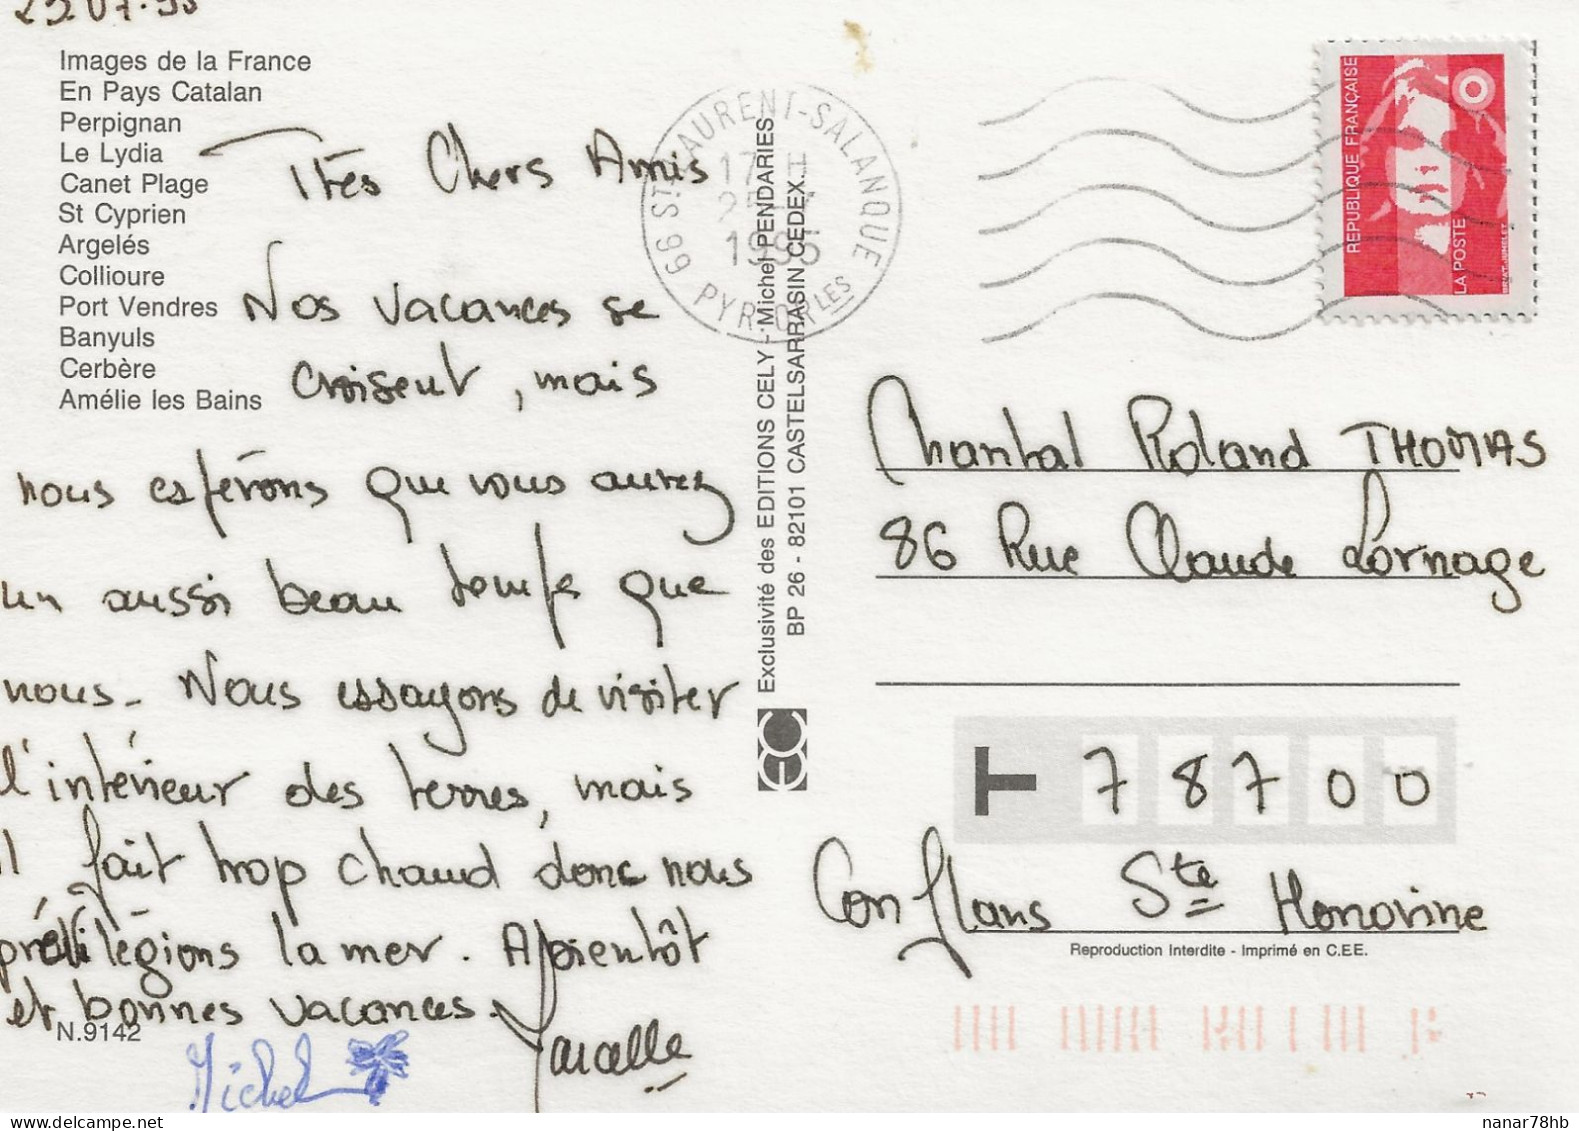 Images de la France
En Pays Catalan
Perpignan
Le Lydia
Canet Plage
St Cyprien
Argelés
Collioure
Port Vendres
Banyuls
Cerbère
Amélie les Bains
Très Chers Amis
Nos vacances se
croisent, mais
nous espérons que vous aurez
un aussi beau temps que
nous. Nous essayons de visiter
l'intérieur des terres, mais
il fait trop chaud donc nous
privilégions la mer. A bientôt
et bonnes vacances.
N.9142
Michel
Exclusivité des EDITIONS CELY - Michel PENDARIES
BP 26 - 82101 CASTELSARRASIN CEDEX
66 ST LAURENT-SALANQUE
17 H
25-7
1995
PYR. OR LES
REPUBLIQUE FRANÇAISE
LA POSTE
Chantal Roland THOMAS
86 Rue Claude Lornage
T 78700
Conflans Ste Honorine
Reproduction Interdite - Imprimé en C.E.E.
nanar78hb